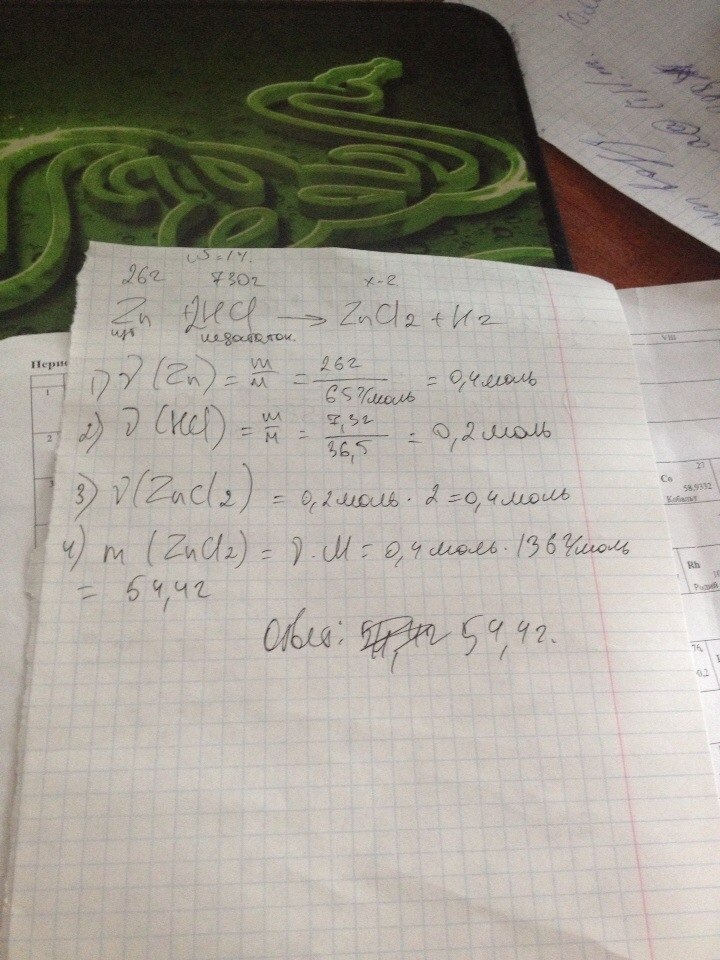 ω=1%.
26г 730г х-г
Zn + 2HCl → ZnCl2 + H2
изб недостаток
1) ν (Zn) = m/M = 26г/65г/моль = 0,4 моль
2) ν (HCl) = m/M = 7,3г/36,5 = 0,2 моль
3) ν (ZnCl2) = 0,2 моль · 2 = 0,4 моль
4) m (ZnCl2) = ν · M = 0,4 моль · 136 г/моль
= 54,4г
Ответ: 54,4г.
Перио
1
2
3
VIII
Co 27
58,9332
Кобальт
Rh
Родий
76,
0,2